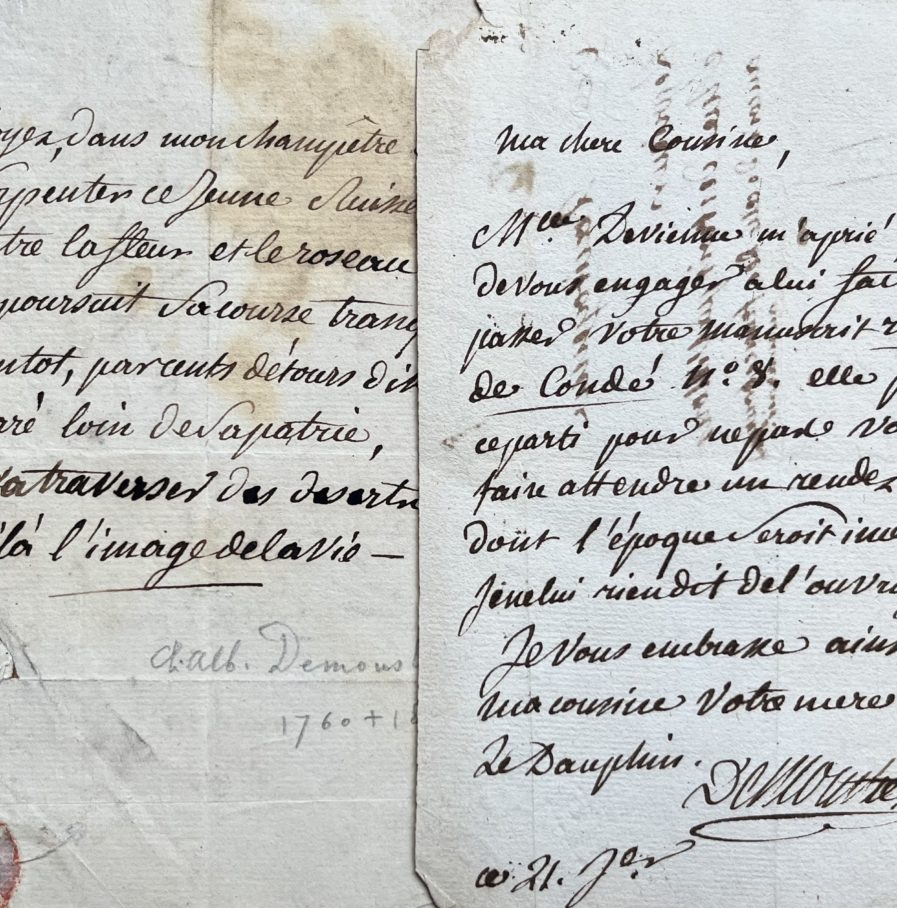 oyez, dans mon champêtre
arpenter ce Jeune Suisse
tre la fleur et le roseau
poursuit Sa course tranq
ntot, par cents détours dis
aré loin de Sa patrie,
va traverser des deserts
ilà l'image de la vie —
Ch. Alb. Demous
1760 + 18
Ma chere Cousine,
Mlle Devienne m'a prié
de vous engager a lui fai
passer votre manuscrit r
de Condé No. 8. elle p
ce parti pour ne pas vo
faire attendre un rendez
dont l'époque Seroit ince
Je ne lui rien dit de l'ouvra
Je vous embrasse ains
ma cousine votre mere
Le Dauphin.
Demoustie
ce 21. Jer